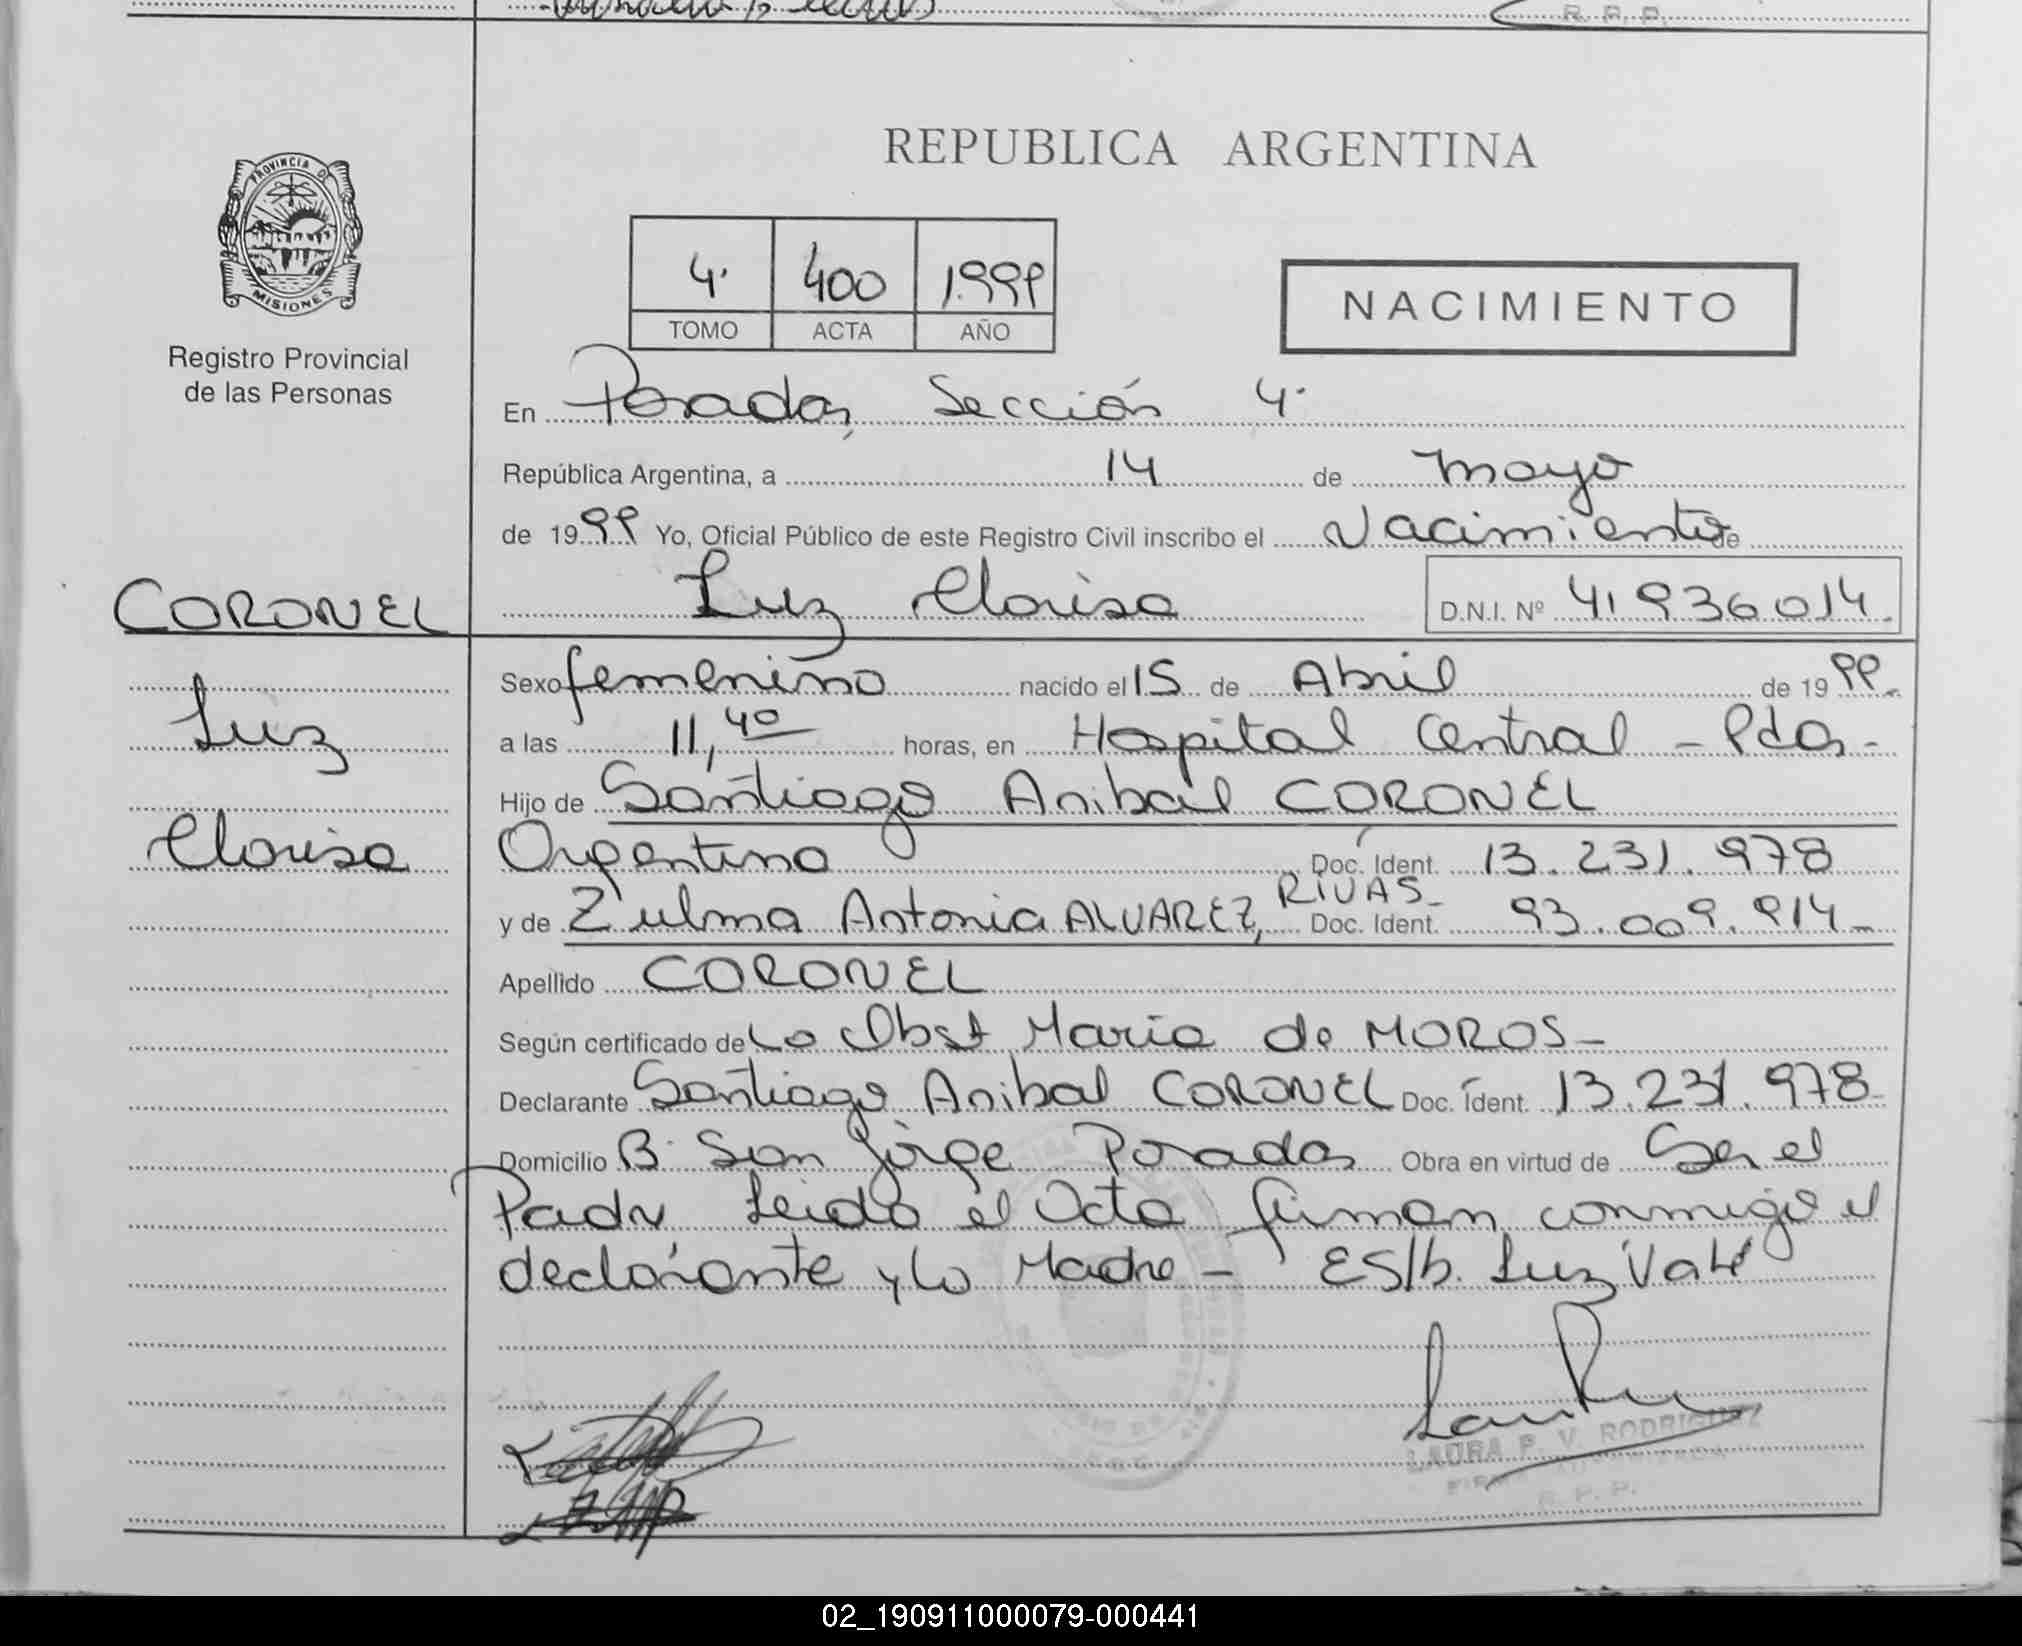 R. P. P.
REPUBLICA ARGENTINA
PROVINCIA DE
MISIONES
Registro Provincial
de las Personas
4· 400 1.999
TOMO ACTA AÑO
NACIMIENTO
En Posadas, Sección 4·
República Argentina, a 14 de mayo
de 1999 Yo, Oficial Público de este Registro Civil inscribo el Nacimiento de
Luz Eloisa D.N.I. Nº 41936014.
CORONEL
Luz
Eloisa
Sexo femenino nacido el 15 de Abril de 1999.
a las 11,40 horas, en Hospital Central - Pdas -
Hijo de Santiago Anibal CORONEL
Argentino Doc. Ident. 13.231.978
y de Zulma Antonia ALVAREZ, RIVAS- Doc. Ident. 93.009.914-
Apellido CORONEL
Según certificado de La Obst Maria de MOROS-
Declarante Santiago Anibal CORONEL Doc. Ident. 13.231.978-
Domicilio B· San Jorge Posadas Obra en virtud de Ser el
Padre Leida el Acta firman conmigo el
declarante y la Madre - ES/b. Luz Vale
LAURA P. V. RODRIGUEZ
R. P. P.
02_190911000079-000441